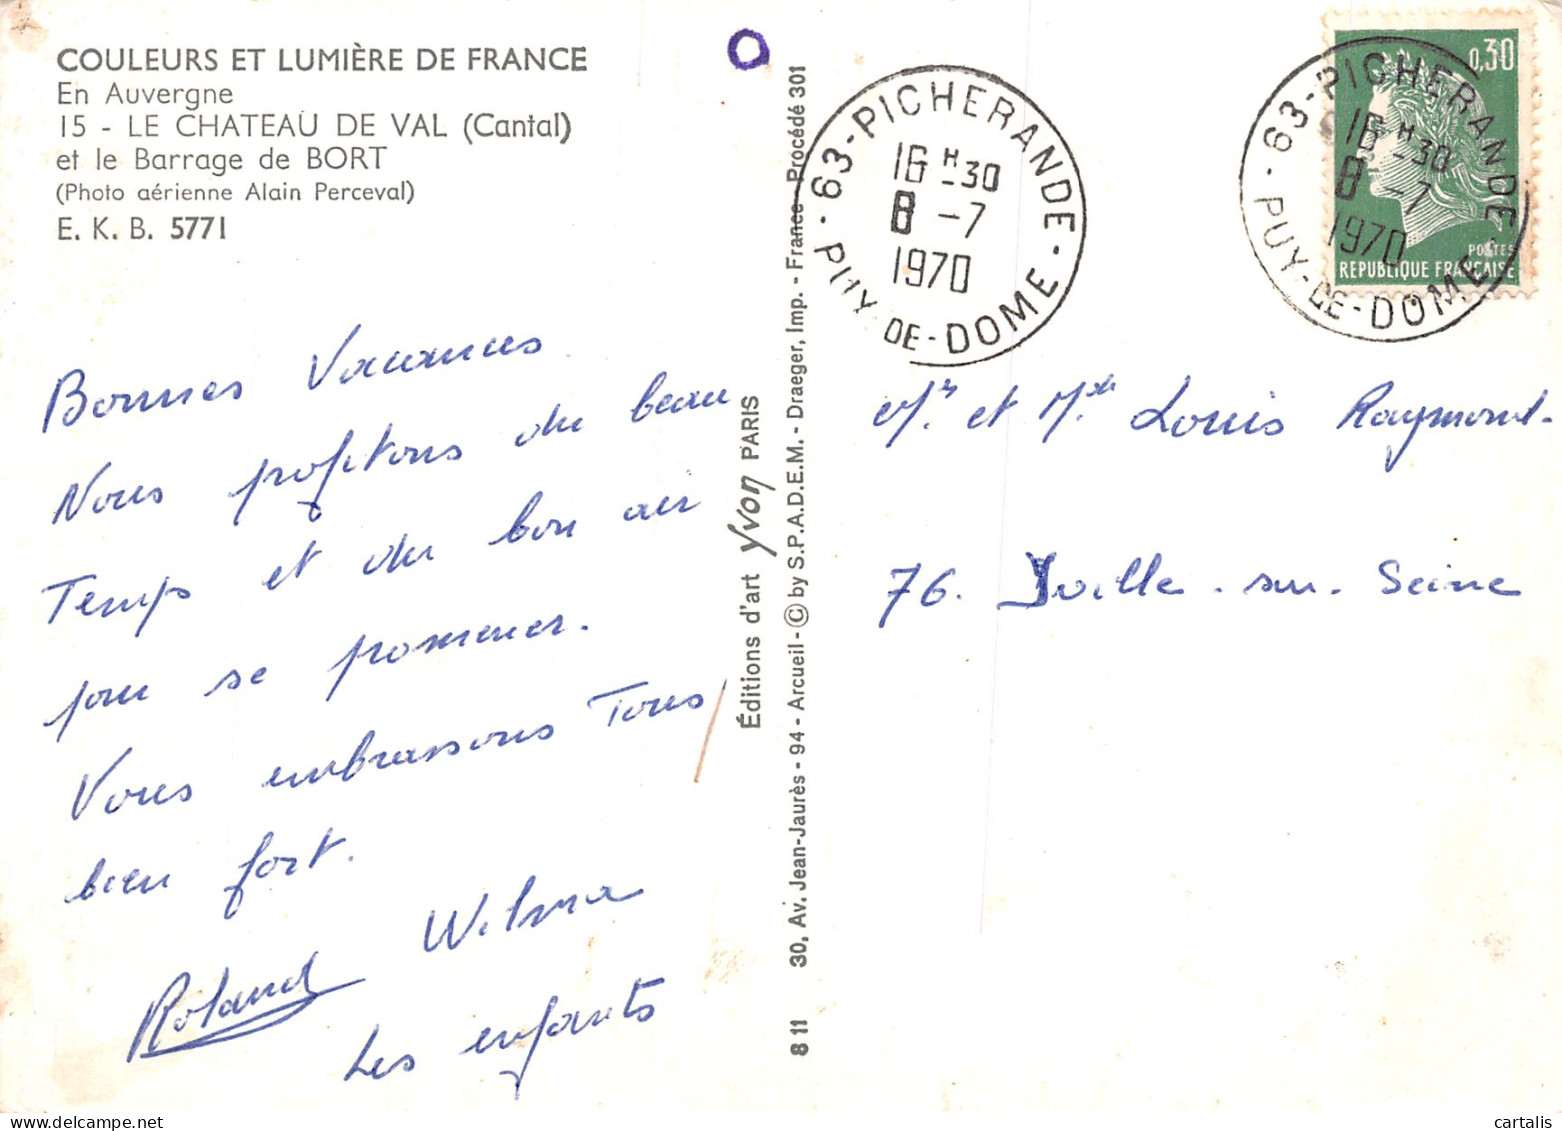 COULEURS ET LUMIÈRE DE FRANCE
En Auvergne
15 - LE CHATEAU DE VAL (Cantal)
et le Barrage de BORT
(Photo aérienne Alain Perceval)
E. K. B. 5771
Bonnes Vacances
Nous profitons du beau
Temps et du bon air
pour se promener.
Vous embrassons Tous
bien fort.
Roland Wilma
Les enfants
Éditions d'art Yvon PARIS
8 11 30, Av. Jean-Jaurès - 94 - Arcueil - © by S.P.A.D.E.M. - Draeger, Imp. - France Procédé 301
63 - PICHERANDE - PUY-DE-DOME
16 H -30
8 -7
1970
0,30
POSTES
REPUBLIQUE FRANÇAISE
63 - PICHERANDE - PUY-DE-DOME
16 H -30
8 -7
1970
Mr. et Mde Louis Raymond.
76. Yville - sur - Seine
cartalis